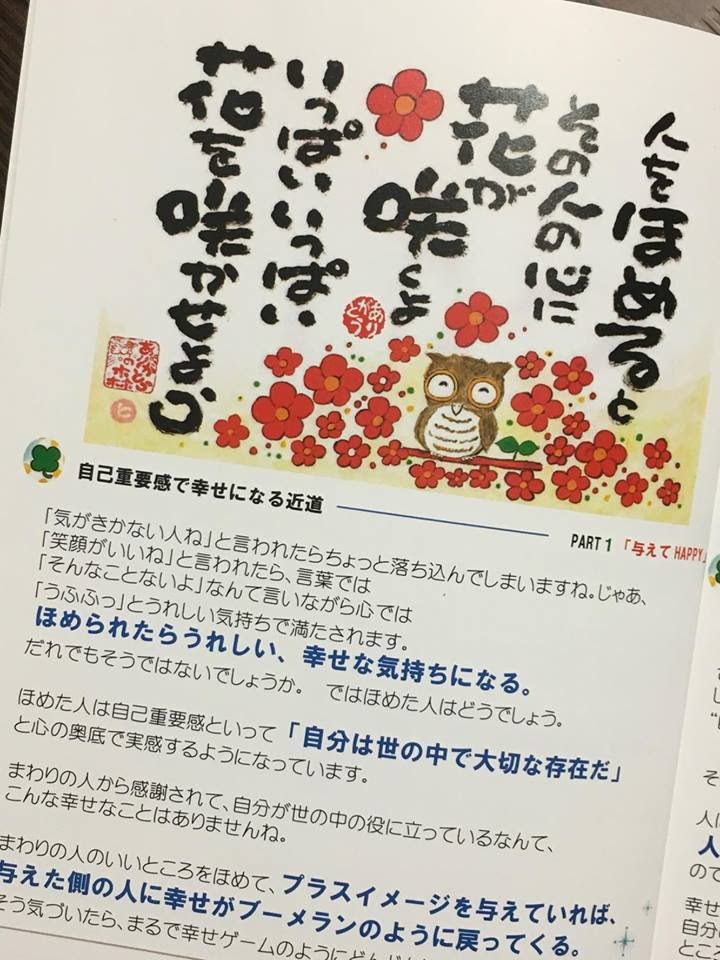 人をほめると
その人の心に
花が
咲くよ
いっぱいいっぱい
花を咲かせよう
ありがとう
自己重要感で幸せになる近道
PART 1 「与えて HAPPY」
「気がきかない人ね」と言われたらちょっと落ち込んでしまいますね。じゃあ、
「笑顔がいいね」と言われたら、言葉では
「そんなことないよ」なんて言いながら心では
「うふふっ」とうれしい気持ちで満たされます。
ほめられたらうれしい、幸せな気持ちになる。
だれでもそうではないでしょうか。 ではほめた人はどうでしょう。
ほめた人は自己重要感といって「自分は世の中で大切な存在だ」
と心の奥底で実感するようになっています。
まわりの人から感謝されて、自分が世の中の役に立っているなんて、
こんな幸せなことはありませんね。
まわりの人のいいところをほめて、プラスイメージを与えていれば、
与えた側の人に幸せがブーメランのように戻ってくる。
そう気づいたら、まるで幸せゲームのように
そ
人
の
幸せ
自分
ところ